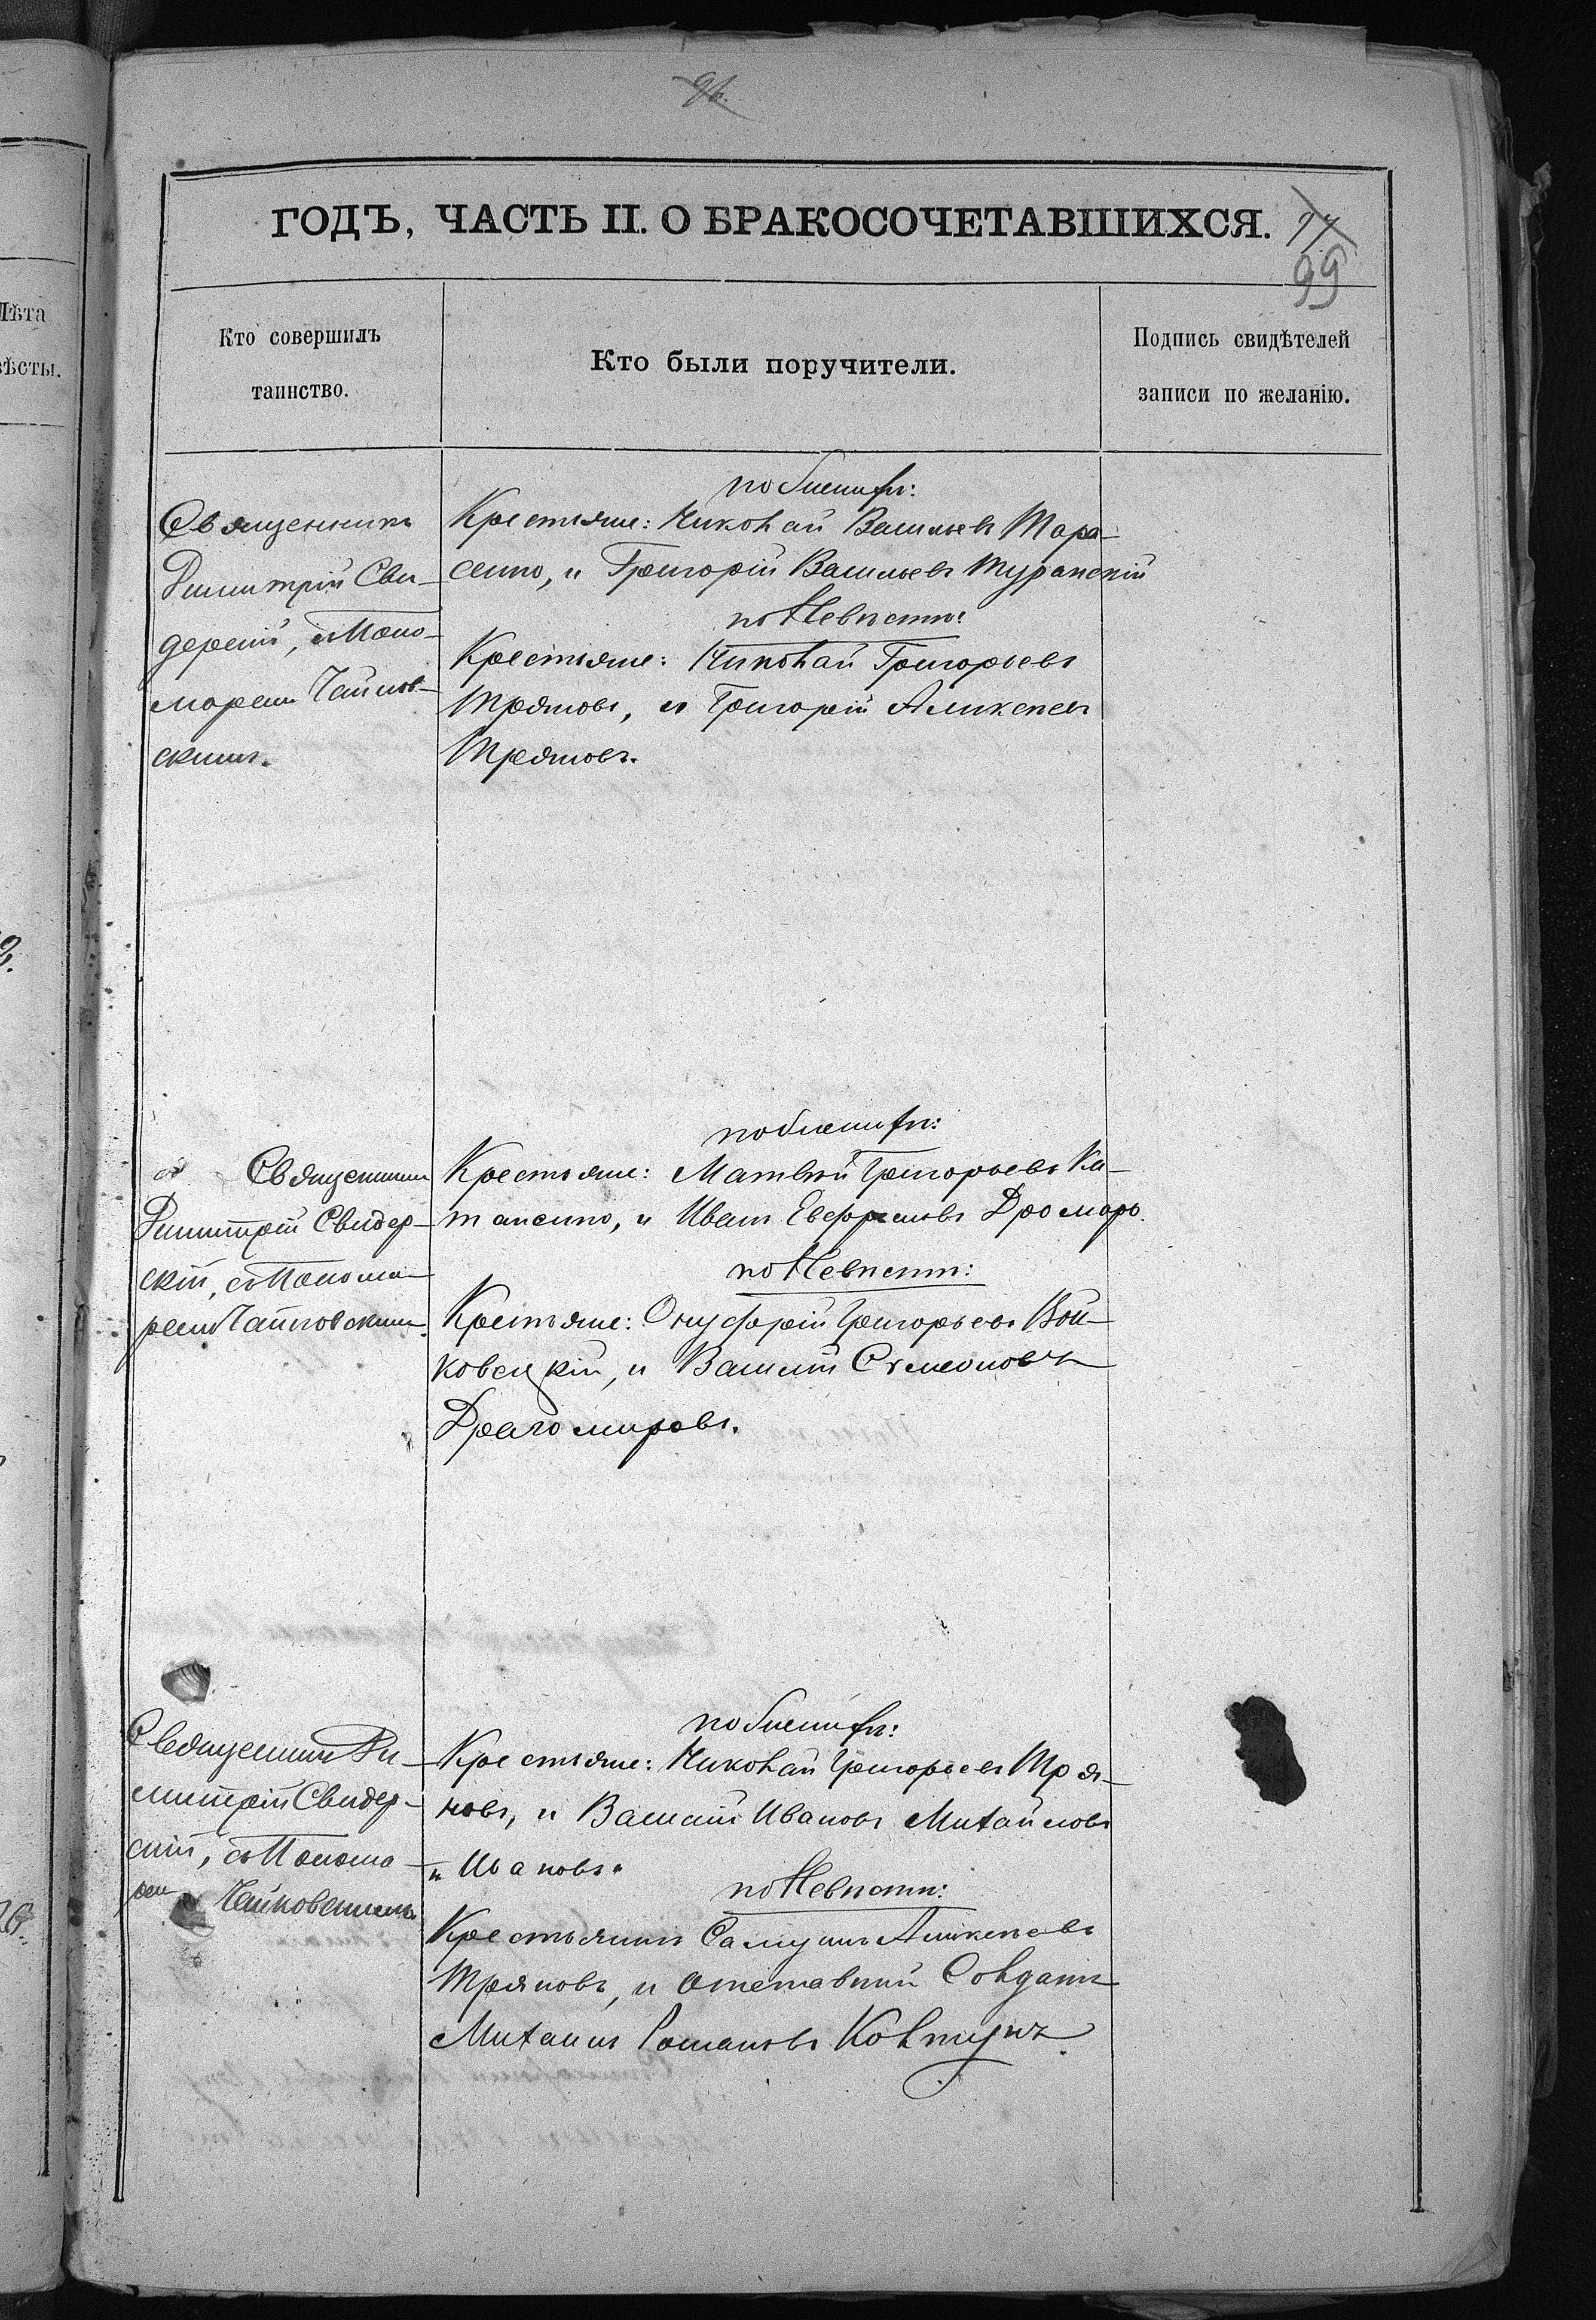 96.
ГОДЪ, ЧАСТЬ II. О БРАКОСОЧЕТАВШИХСЯ.
99
Лѣта
вѣсты.
Кто совершилъ
таинство.
Кто были поручители.
Подпись свидѣтелей
записи по желанію.
Священникъ
Димитрій Сви-
дерскій, съ Поно-
маремъ Чайков-
скимъ.
по Женихѣ:
Крестьяне: Николай Васильевъ Тара-
сенко, и Григорій Васильевъ Туранскій
по Невѣстѣ:
Крестьяне: Николай Григорьевъ
Пряновъ, и Григорій Аликсѣевъ
Пряновъ.
Священникъ
Димитрій Свидер-
скій, съ Понома-
ремъ Чайковскимъ.
по Женихѣ:
Крестьяне: Матвѣй Григорьевъ Ки-
тансенко, и Иванъ
по Невѣстѣ:
Крестьяне: Онуфрій Григорьевъ Вой-
ковецкій, и Василій Сѵмеоновъ
Драгомировъ.
Священникъ Ди-
митрій Свидер-
скій, съ Понома-
ремъ Чайковскимъ.
по Женихѣ:
Крестьяне: Николай Григорьевъ Пря-
новъ, и Василій Ивановъ Михайловъ
и Ивановъ.
по Невѣстѣ:
Крестьянинъ Самуилъ Аликсѣевъ
Пряновъ, и Отставный Солдатъ
Михаилъ Романовъ Колтунъ.